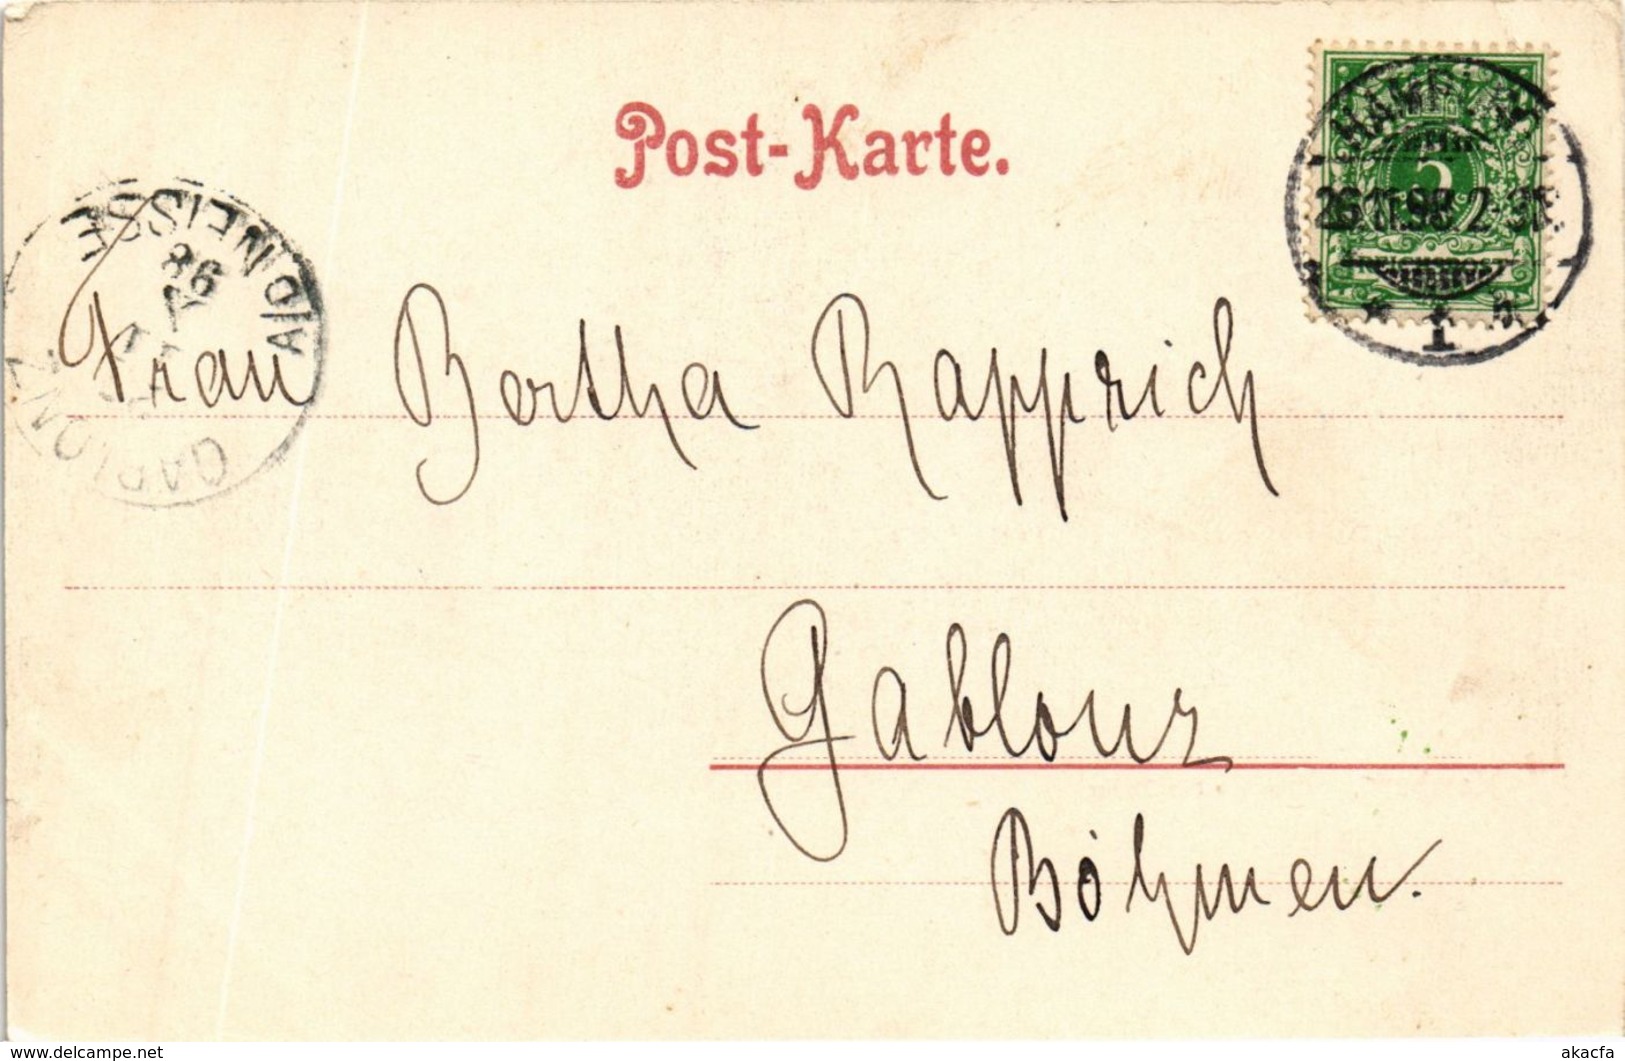 Post-Karte.
HAMBURG
26.11.98. 2-3N.
* 1
GABLONZ A/D NEISSE
98
5
Frau Bertha Rapprich
Gablonz
Böhmen.
www.delcampe.net
akacfa